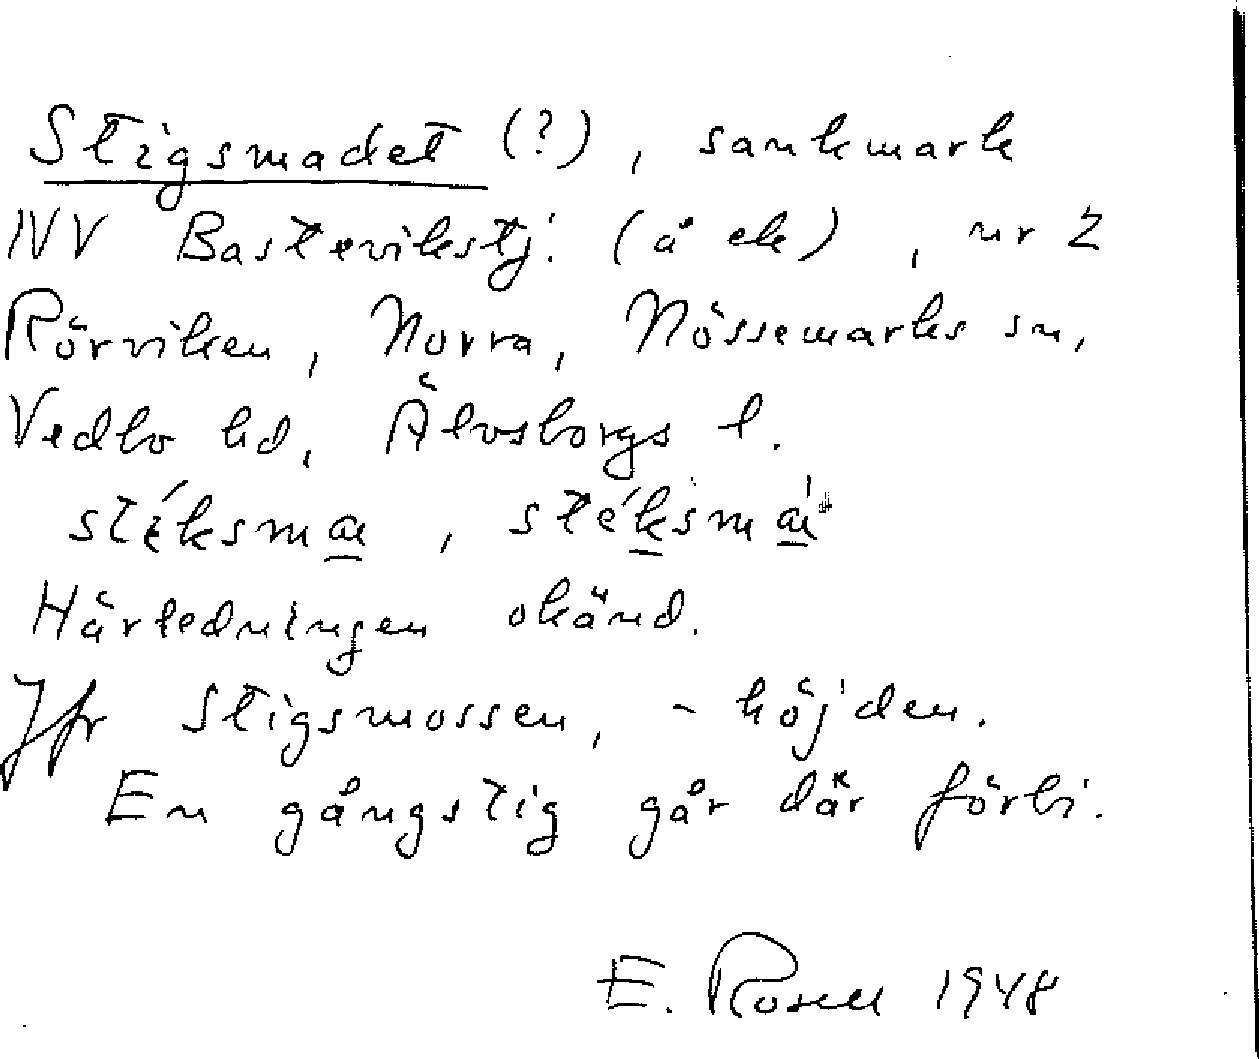 Stigsmadet (?), sankmark
NV Bastevikstj. (å ek), nr 2
Rörviken, Norra, Nössemarks sn,
Vedbo hd, Älvsborgs l.
Härledningen okänd.
Jfr Stigsmossen, -höjden.
En gångstig går där förbi.
E. Rosell 1948